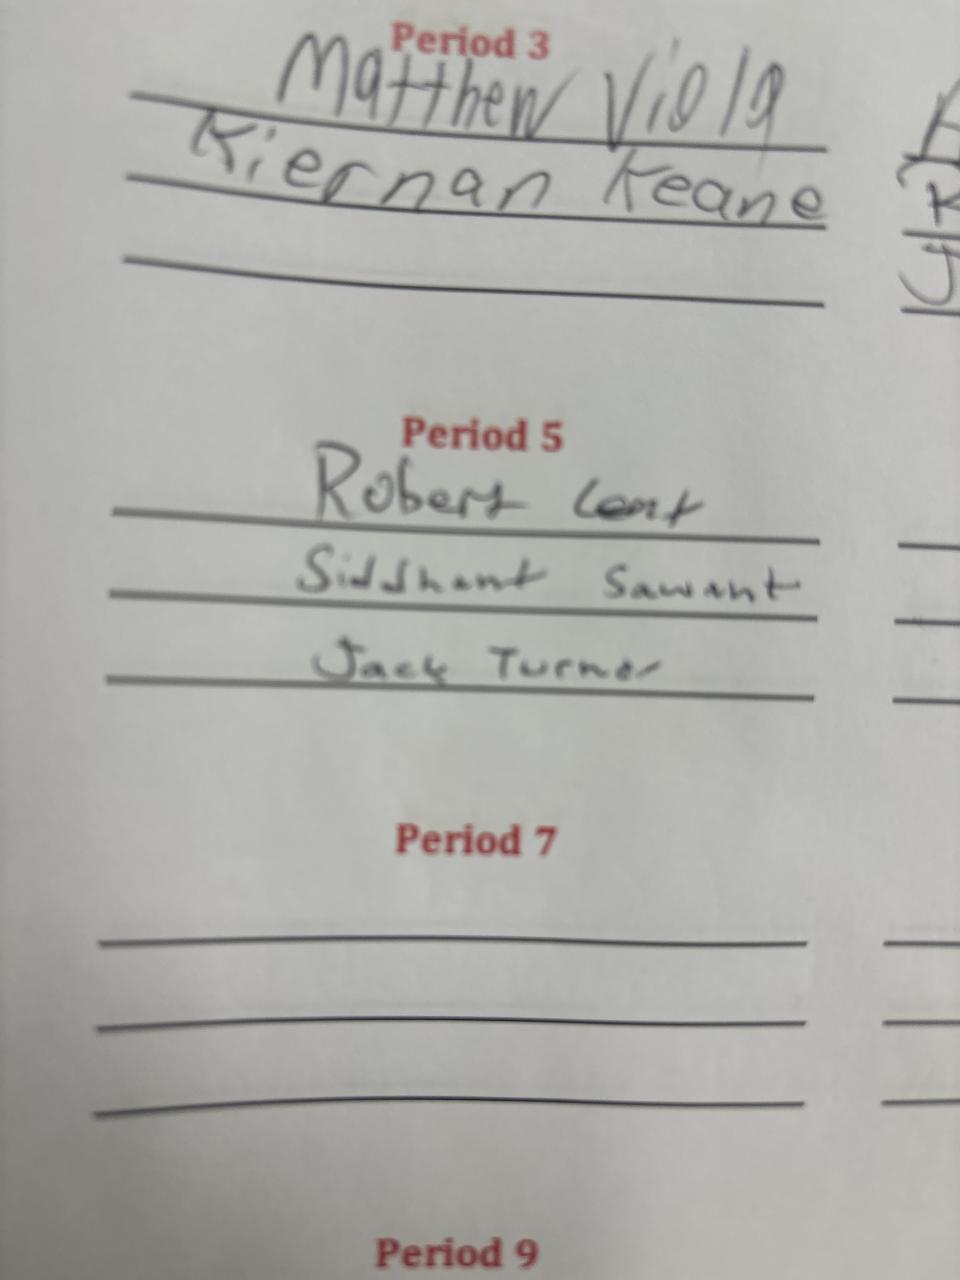 Period 3
Matthew Viola
Kiernan Keane
Period 5
Robert Lent
Siddhant Sawant
Jack Turner
Period 7
Period 9